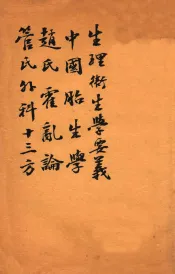 生理衛生學要義
中國胎生學
趙氏霍亂論
管氏外科十三方